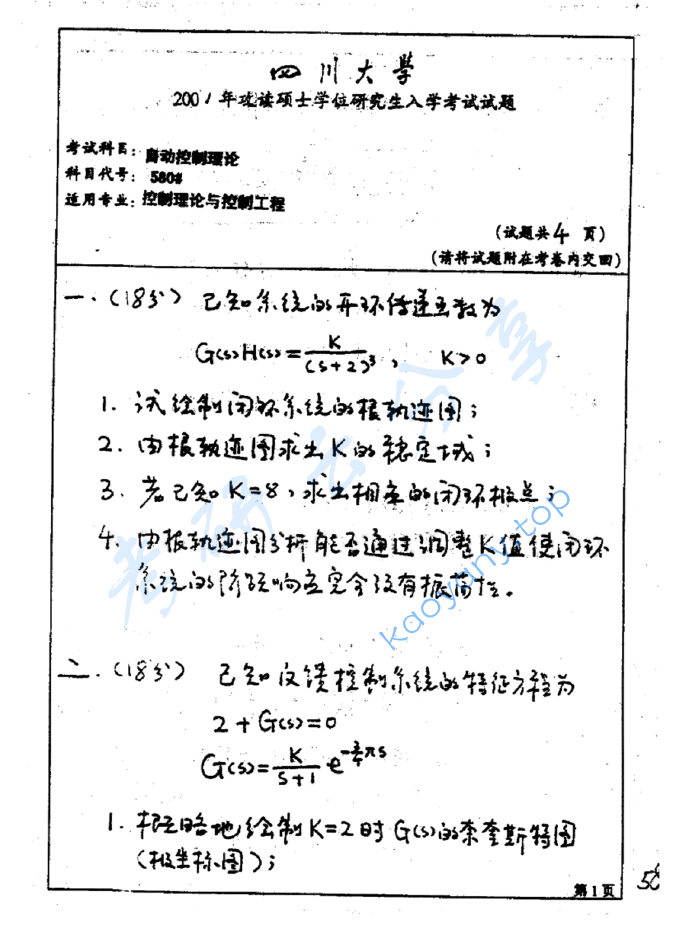 四川大学
2001年攻读硕士学位研究生入学考试试题
考试科目：自动控制理论
科目代号：580#
适用专业：控制理论与控制工程
（试题共4页）
（请将试题附在考卷内交回）
一．（18分）已知系统的开环传递函数为
G(s)H(s)=K/(s+2)³，K>0
1．试绘制闭环系统的根轨迹图；
2．由根轨迹图求出K的稳定域；
3．若已知K=8，求出相应的闭环极点；
4．由根轨迹图分析能否通过调整K值使闭环
系统的阶跃响应完全没有振荡性。
二．（18分）已知反馈控制系统的特征方程为
2+G(s)=0
G(s)=K/(s+1) e^(-¾πs)
1．粗略地绘制K=2时G(s)的奈奎斯特图
（极坐标图）；
第1页
考研云分享
kaoyany.top